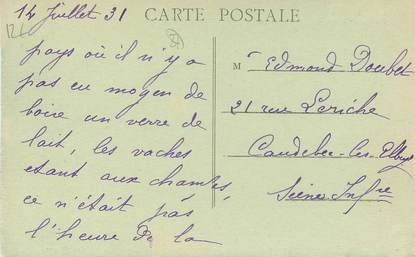 14 juillet 31
CARTE POSTALE
pays où il n'y a
pas eu moyen de
boire un verre de
lait, les vaches
etant aux champs,
ce n'était pas
l'heure de la
Mr Edmond Doubet
21 rue Leriche
Caudebec-les-Elbeuf
Seine Infre